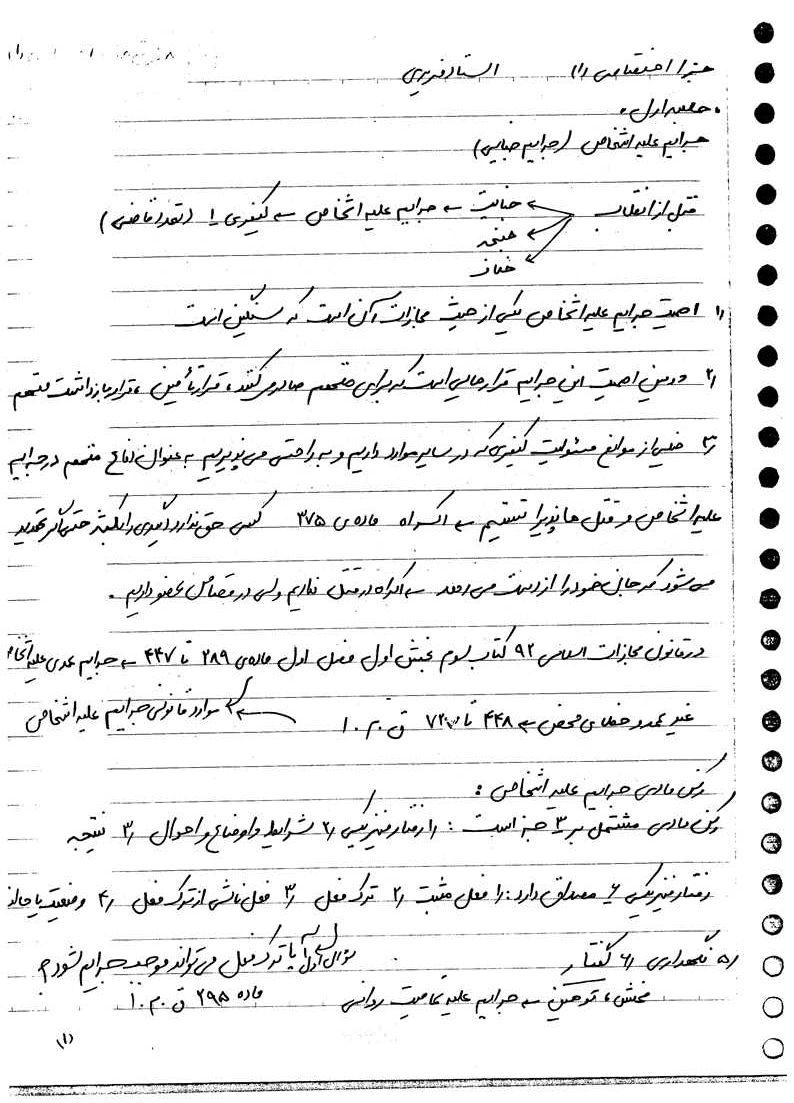 جزا اختصاصی (۱) استاد فریدی
جلسه اول.
جرایم علیه اشخاص (جرایم جنایی)
قبل از انقلاب جنایت ← جرایم علیه اشخاص ← کیفری ۱ (تعدد قاضی)
جنحه
خلاف
۱/ اهمیت جرایم علیه اشخاص یکی از حیث مجازات آن است که سنگین است
۲/ دومین اهمیت این جرایم قرارهایی است که برای متهم صادر می‌کنند، قرار تأمین، قرار بازداشت متهم
۳/ خیلی از موانع مسئولیت کیفری که در سایر موارد داریم و به راحتی می‌پذیریم به عنوان دفاع متهم در جرایم
علیه اشخاص و قتل ها پذیرا نیستیم ← اکراه ماده‌ی ۳۷۵ کسی حق ندارد آدمی را بکشد حتی اگر تهدید
می‌شود که جان خود را از دست می‌دهد ← اکراه در قتل نداریم ولی در قصاص عضو داریم.
در قانون مجازات اسلامی ۹۲ کتاب سوم بخش اول فصل اول ماده‌ی ۲۸۹ تا ۴۴۷ ← جرایم عمدی علیه اشخاص
غیر عمد و خطای محض ← ۴۴۸ تا ۷۲۷ ق.م.ا ← موارد قانونی جرایم علیه اشخاص
رکن مادی جرایم علیه اشخاص :
رکن مادی مشتمل بر ۳ جز است : ۱/ رفتار فیزیکی ۲/ شرایط و اوضاع و احوال ۳/ نتیجه
رفتار فیزیکی ۶ مصداق دارد: ۱/ فعل مثبت ۲/ ترک فعل ۳/ فعل ناشی از ترک فعل ۴/ وضعیت یا حالت
۵/ نگهداری ۶/ گفتار سوال اول آیا ترک فعل می‌تواند موجب جرایم شود؟
فحش، توهین ← جرایم علیه تمامیت روانی ماده ۲۹۵ ق.م.ا
(۱)